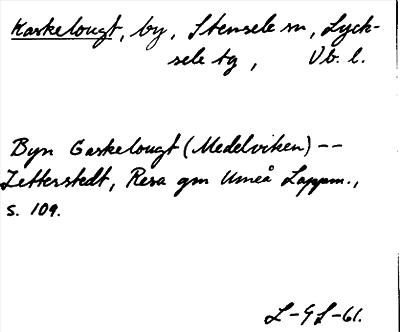 Kaskelougt, by, Stensele sn, Lyck-
sele tg, Vb. l.
Byn Gaskelougt (Medelviken) --
Zetterstedt, Resa gm Umeå Lappm.,
s. 109.
L-GL-61.